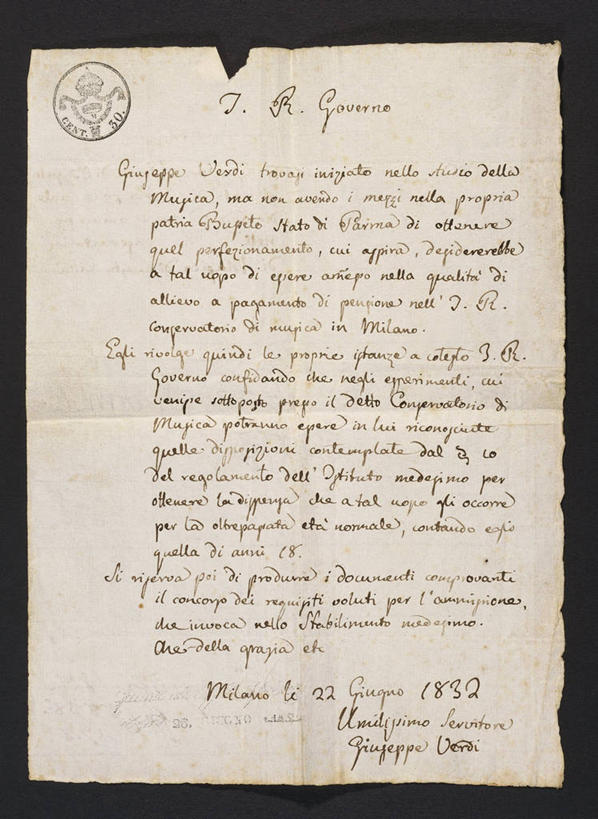 CENT. 30.
I. R. Governo
Giuseppe Verdi trovasi iniziato nello studio della
Musica, ma non avendo i mezzi nella propria
patria Busseto Stato di Parma di ottenere
quel perfezionamento, cui aspira, desidererebbe
a tal uopo di essere am̃esso nella qualità di
allievo a pagamento di pensione nell' I. R.
Conservatorio di musica in Milano.
Egli rivolge quindi le proprie istanze a cotesto I. R.
Governo confidando che negli esperimenti, cui
venisse sottoposto presso il detto Conservatorio di
Musica potranno essere in lui riconosciute
quelle disposizioni contemplate dal § 10
del regolamento dell' Istituto medesimo per
ottenere la dispensa che a tal uopo gli occorre
per la oltrepassata età normale, contando egli
quella di anni 18.
Si riserva poi di produrre i documenti comprovanti
il concorso dei requisiti voluti per l'ammissione,
che invoca nello Stabilimento medesimo.
Che della grazia etc
Milano li 22 Giugno 1832
Umilissimo Servitore
Giuseppe Verdi